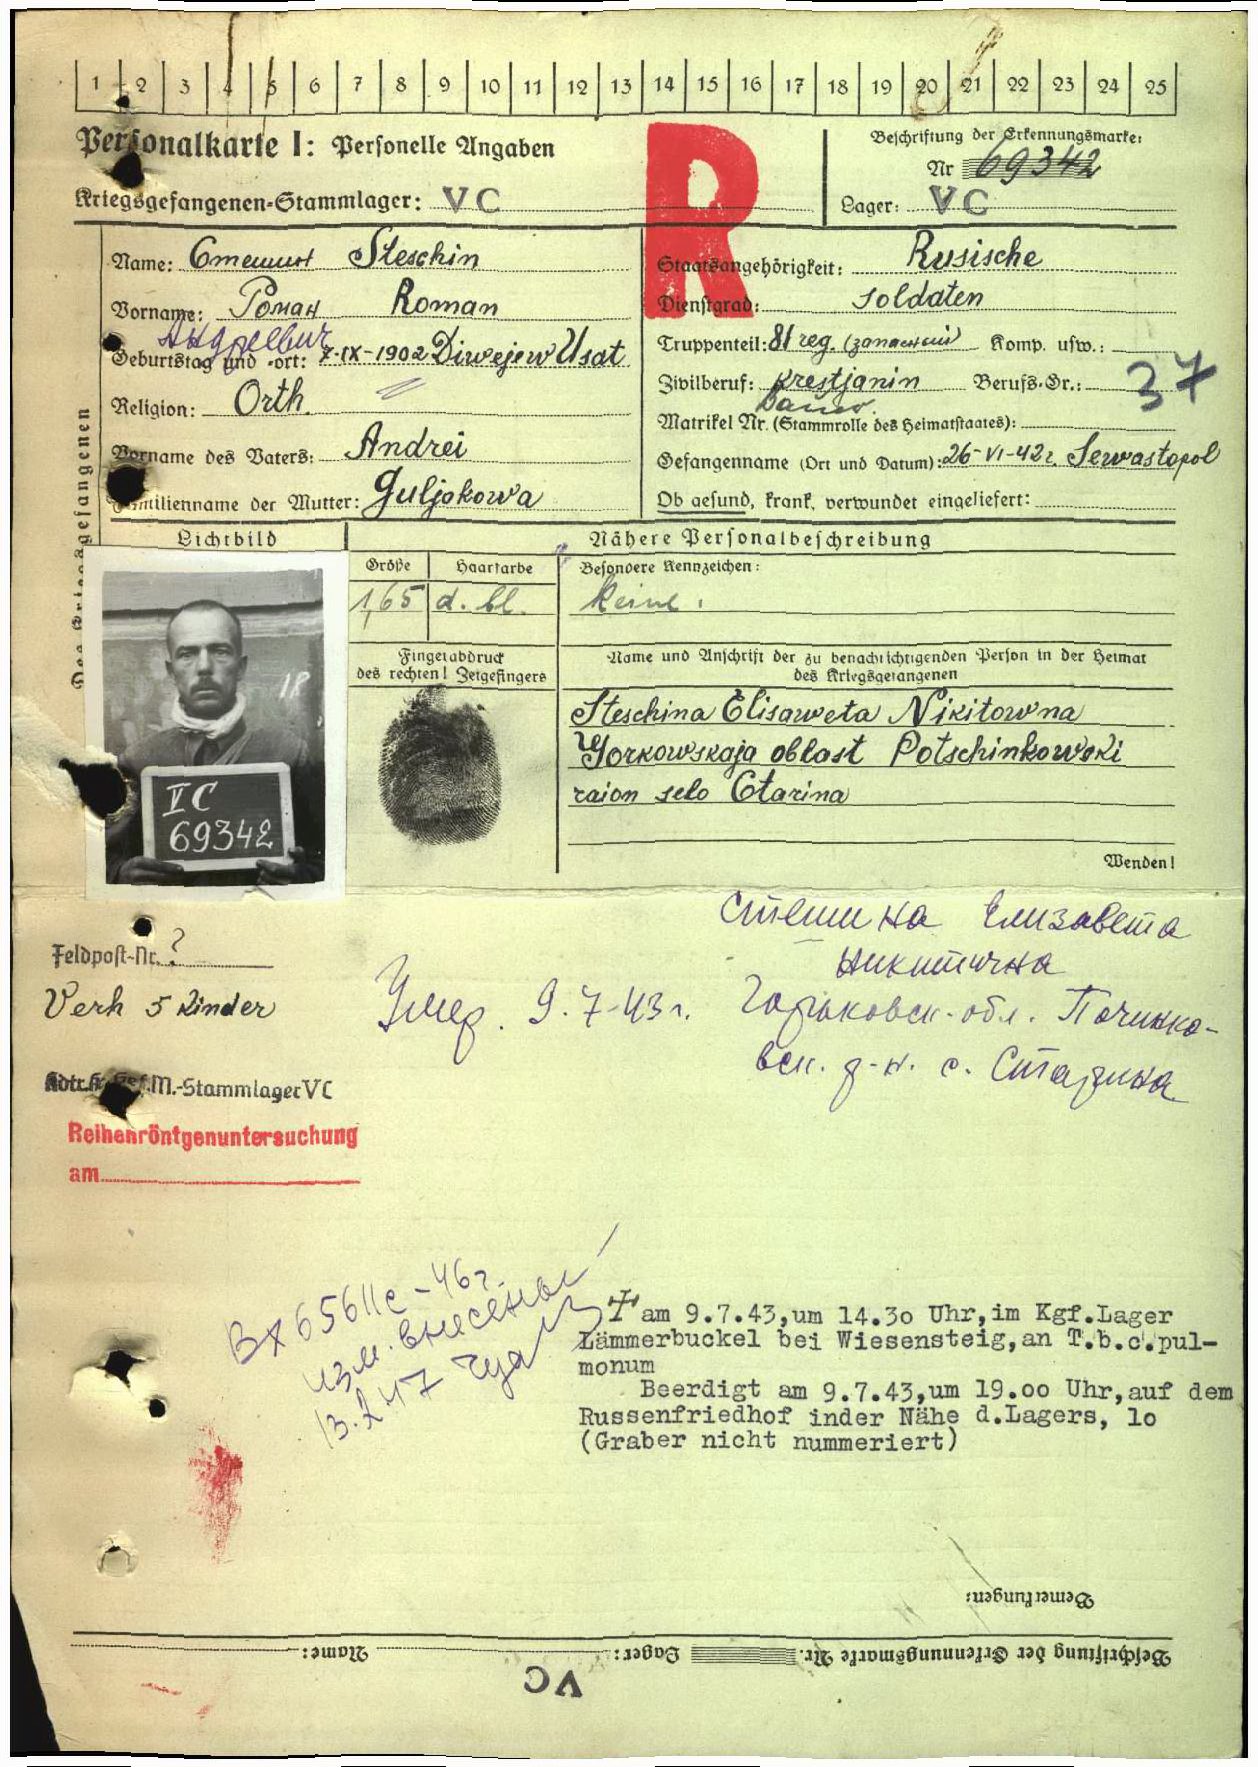 1 2 3 4 5 6 7 8 9 10 11 12 13 14 15 16 17 18 19 20 21 22 23 24 25
Personalkarte I: Personelle Angaben
Kriegsgefangenen-Stammlager: VC
Beschriftung der Erkennungsmarke:
Nr 69342
Lager: VC
R
Des Kriegsgefangenen
Name: Стешин Steschin
Vorname: Роман Roman
Андреевич
Geburtstag und -ort: 7-IX-1902 Diwejew Usat
Religion: Orth.
Vorname des Vaters: Andrei
Familienname der Mutter: Guljakowa
Staatsangehörigkeit: Rusische
Dienstgrad: soldaten
Truppenteil: 81 reg. (запасний Komp. usw.:
Zivilberuf: Krestjanin Berufs-Gr.: 37
Bauer.
Matrikel Nr. (Stammrolle des Heimatstaates):
Gefangenname (Ort und Datum): 26-VI-42г. Sewastopol
Ob gesund, krank, verwundet eingeliefert:
Lichtbild
Nähere Personalbeschreibung
Größe Haarfarbe Besondere Kennzeichen:
1,65 d. bl. keine.
Fingerabdruck
des rechten! Zeigefingers
Name und Anschrift der zu benachrichtigenden Person in der Heimat
des Kriegsgefangenen
Steschina Elisaweta Nikitowna
Gorkowskaja oblast Potschinkowski
raion selo Starina
18
VC
69342
Wenden!
Стешина Елизавета
Никитична
Горьковск-обл. Починко-
вск. р-н. с. Старина
Feldpost-Nr. ?
Verh 5 Kinder
Умер. 9.7-43г.
M.-Stammlager VC
Reihenröntgenuntersuchung
am
Вх 65611с-46г.
изм. внесены
13.X 47
✝ am 9.7.43,um 14.3o Uhr,im Kgf.Lager
Lämmerbuckel bei Wiesensteig,an T.b.c.pul-
monum
Beerdigt am 9.7.43,um 19.oo Uhr,auf dem
Russenfriedhof inder Nähe d.Lagers, lo
(Graber nicht nummeriert)
Bemerkungen:
Beschriftung der Erkennungsmarke Nr. Lager: Name:
VC